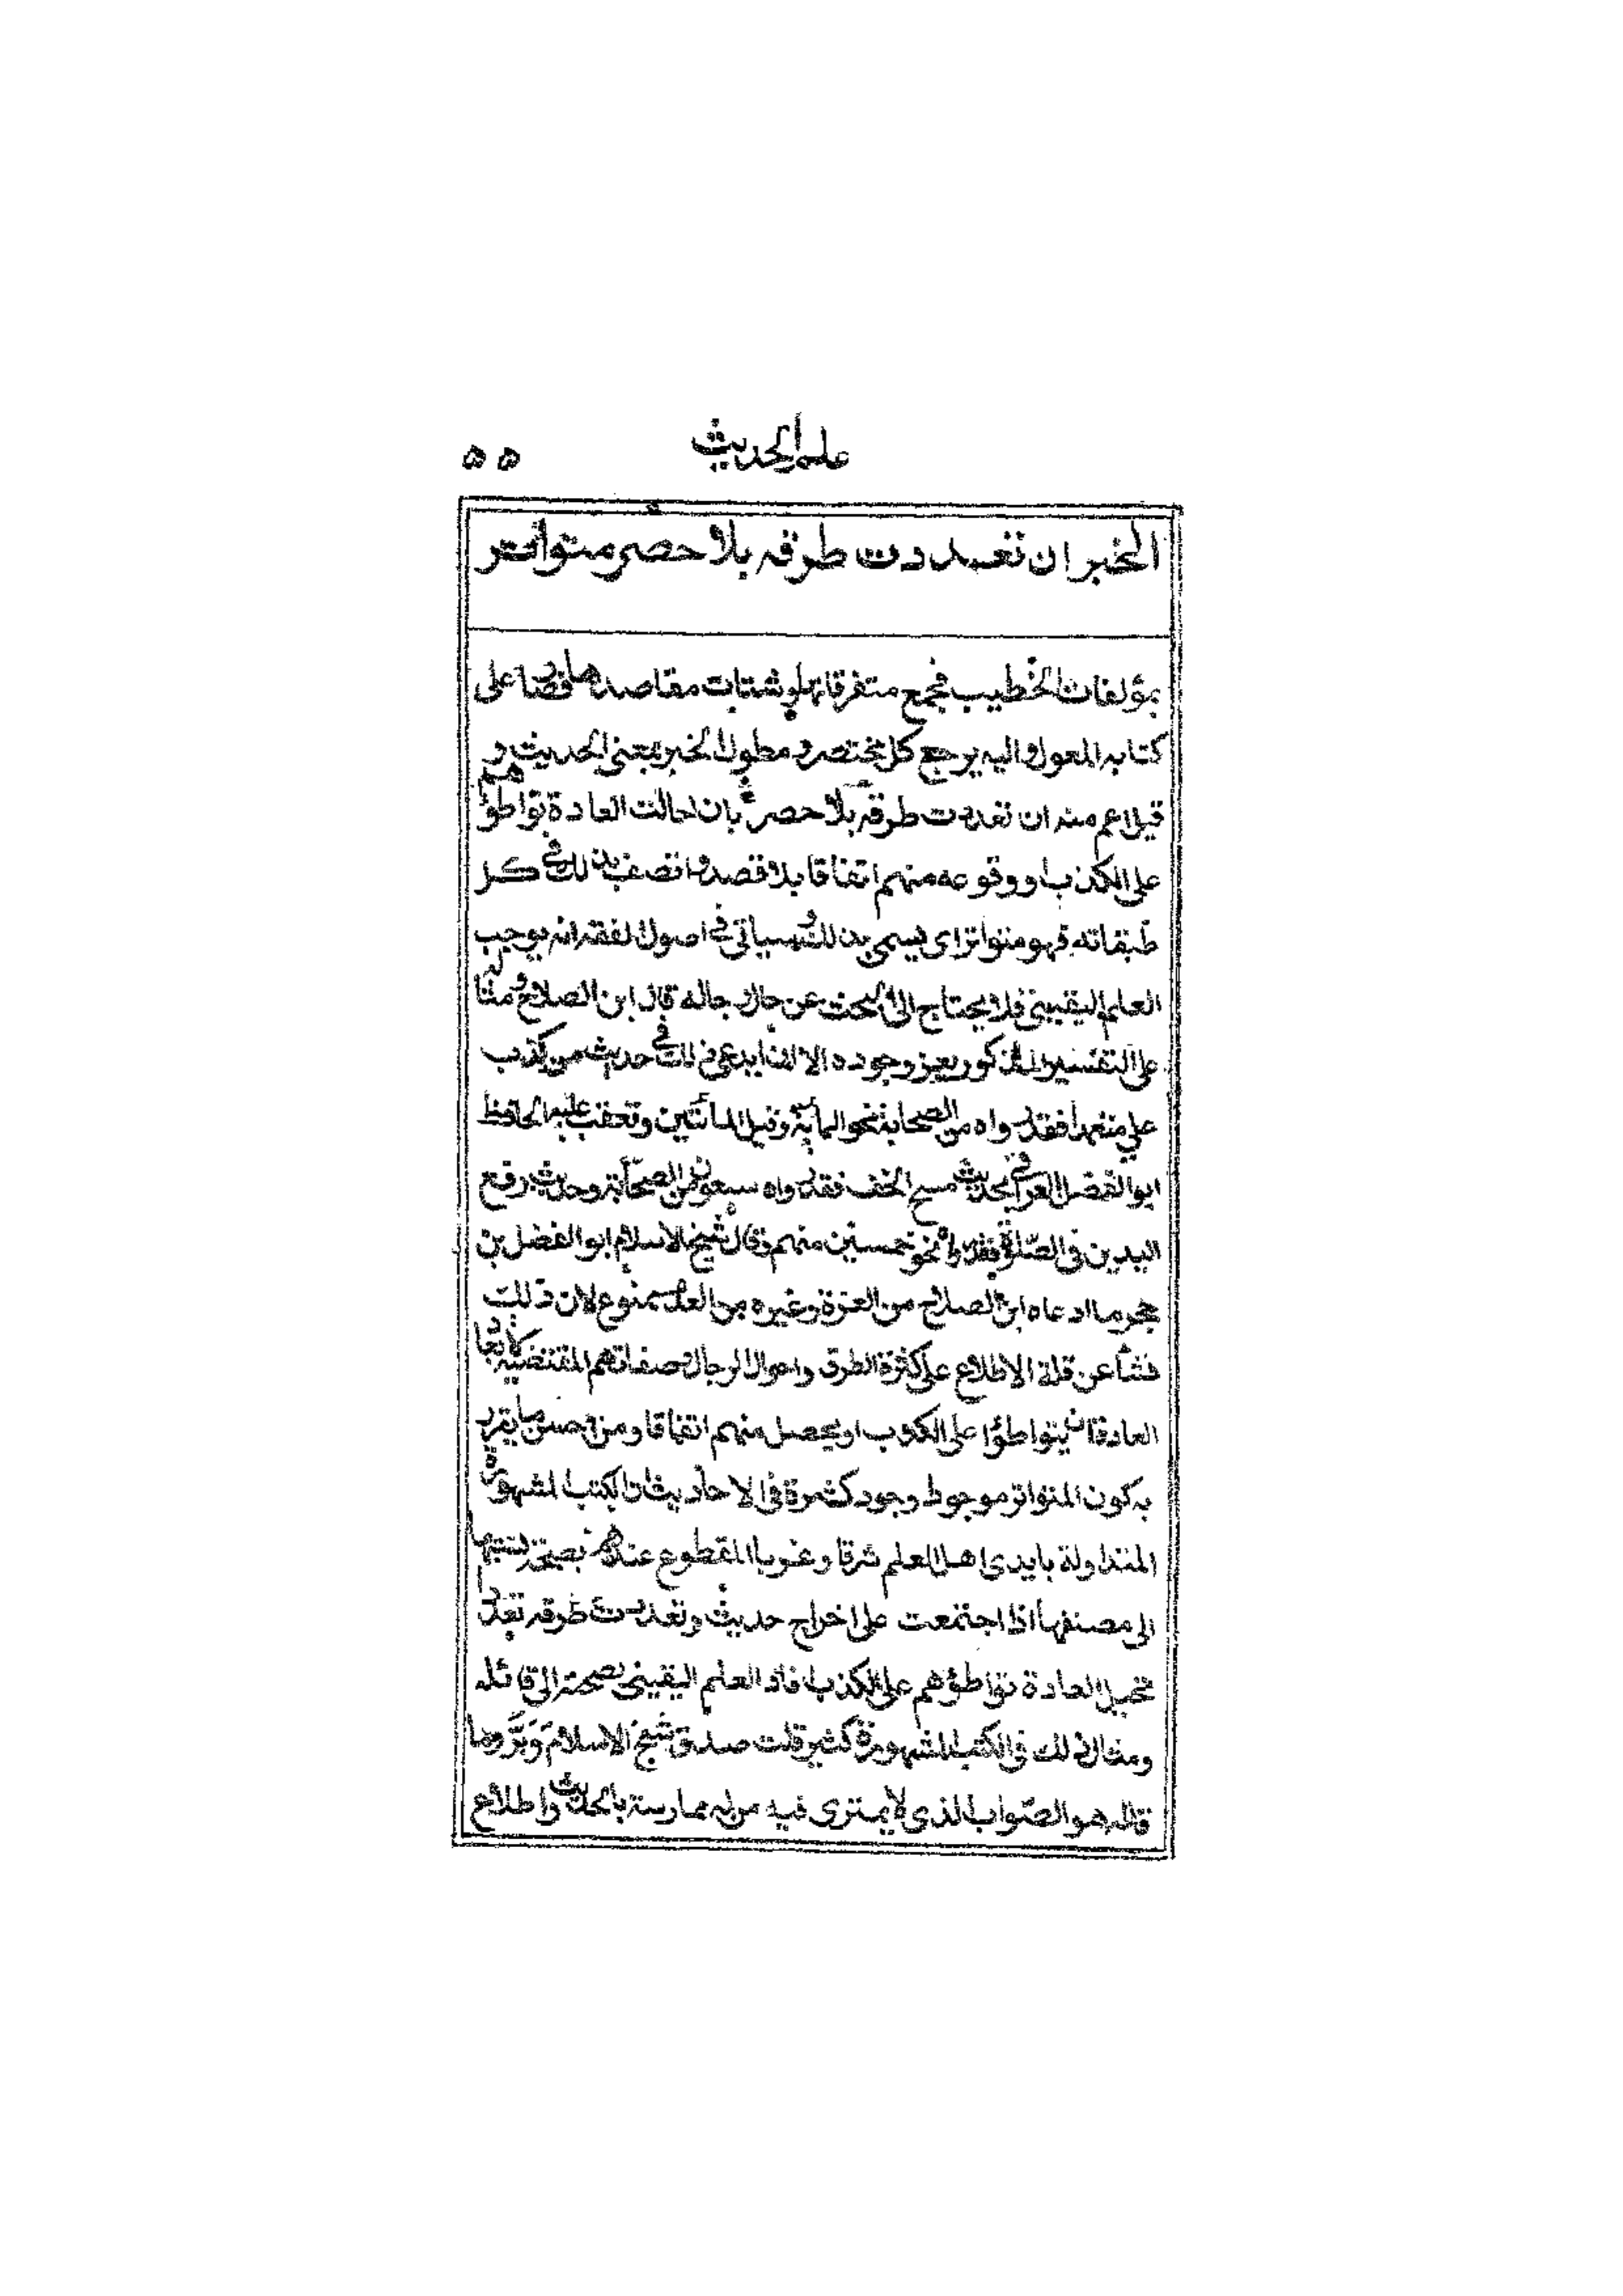 علم الحديث ٥٥
الخبر ان تعددت طرقه بلا حصر متواتر
بمؤلفات الخطيب فجمع متفرقاتها وشتات مقاصدها فصار على
كتابه المعول واليه يرجع كل مختصر ومطول الخبر بمعنى الحديث و
قيل اعم منه ان تعددت طرقه بلا حصر بان احالت العادة تواطؤهم
على الكذب او وقوعه منهم اتفاقا بلا قصد واتصف بذلك في كل
طبقاته فهو متواتر اى يسمى بذلك وسياتى في اصول الفقه انه يوجب
العلم اليقيني فلا يحتاج الى البحث عن حال رجاله قال ابن الصلاح ومثاله
على التفسير المذكور يعز وجوده الا ان يدعى ذلك في حديث من كذب
على متعمدا فقد رواه من الصحابة نحو المائة وقيل المائتين وتعقب عليه الحافظ
ابو الفضل العراقى بحديث مسح الخف فقد رواه سبعون من الصحابة وحديث رفع
اليدين في الصلوة فقد رواه نحو خمسين منهم وقال شيخ الاسلام ابو الفضل بن
حجر ما ادعاه ابن الصلاح من العزة وغيره من العدم ممنوع لان ذلك
نشأ عن قلة الاطلاع على كثرة الطرق واحوال الرجال وصفاتهم المقتضية لابعاد
العادة ان يتواطؤا على الكذب او يحصل منهم اتفاقا ومن احسن ما يقرر
به كون المتواتر موجودا وجود كثرة في الاحاديث ان الكتب المشهورة
المتداولة بايدى اهل العلم شرقا وغربا المقطوع عندهم بصحة نسبتها
الى مصنفيها اذا اجتمعت على اخراج حديث وتعددت طرقه تعددا
تحيل العادة تواطؤهم على الكذب افاد العلم اليقينى بصحته الى قائله
ومثال ذلك في الكتب المشهورة كثير قلت صدق شيخ الاسلام وبر وما
قاله هو الصواب الذى لا يمترى فيه من له ممارسة بالحديث واطلاع